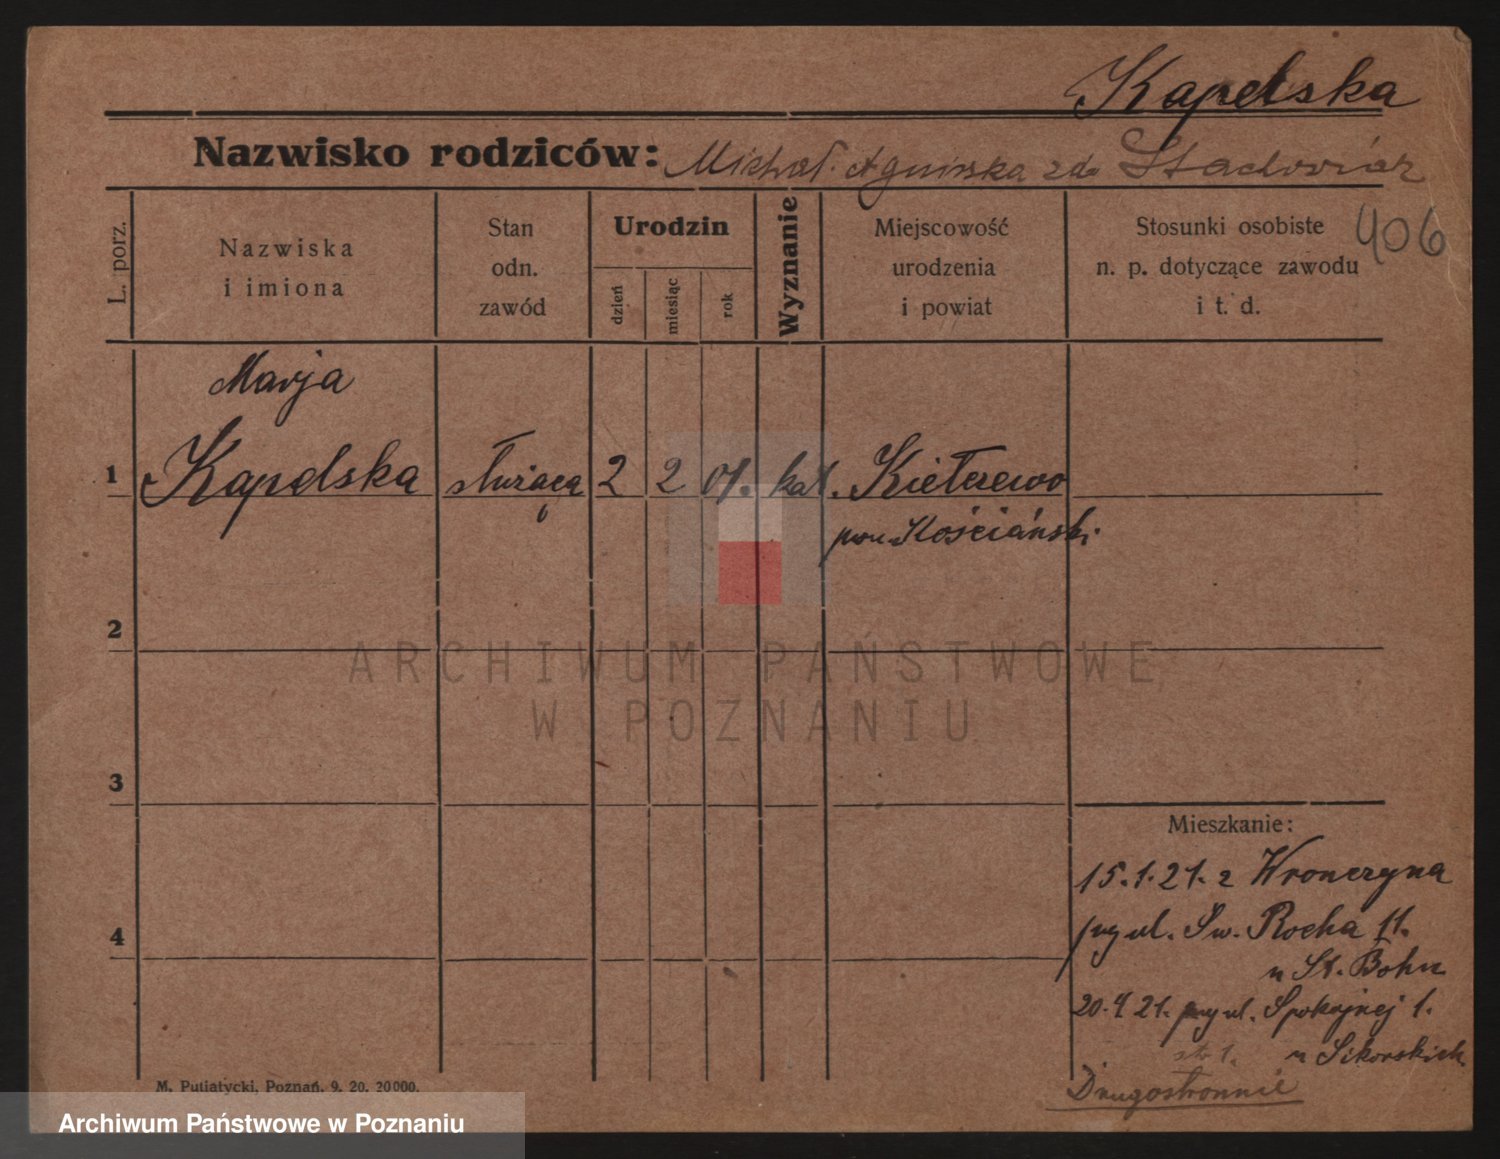 Kapelska
Nazwisko rodziców: Michał. Agnieszka zdo Stachowiak
406
L. porz.
Nazwiska
i imiona
Stan
odn.
zawód
Urodzin
dzień
miesiąc
rok
Wyznanie
Miejscowość
urodzenia
i powiat
Stosunki osobiste
n. p. dotyczące zawodu
i t. d.
Marja
1 Kapelska służąca 2 2 01. kat. Kiełczewo
pow. Kościański
2
3
Mieszkanie:
15.1.21. z Wronczyna
4
przy ul. Św. Rocha 11.
u St. Bohn
20.4 21. przy ul. Spokojnej 1.
str 1. u Sikorskich
Drugostronnie
M. Putiatycki, Poznań. 9. 20. 20000.
ARCHIWUM PAŃSTWOWE
W POZNANIU
Archiwum Państwowe w Poznaniu